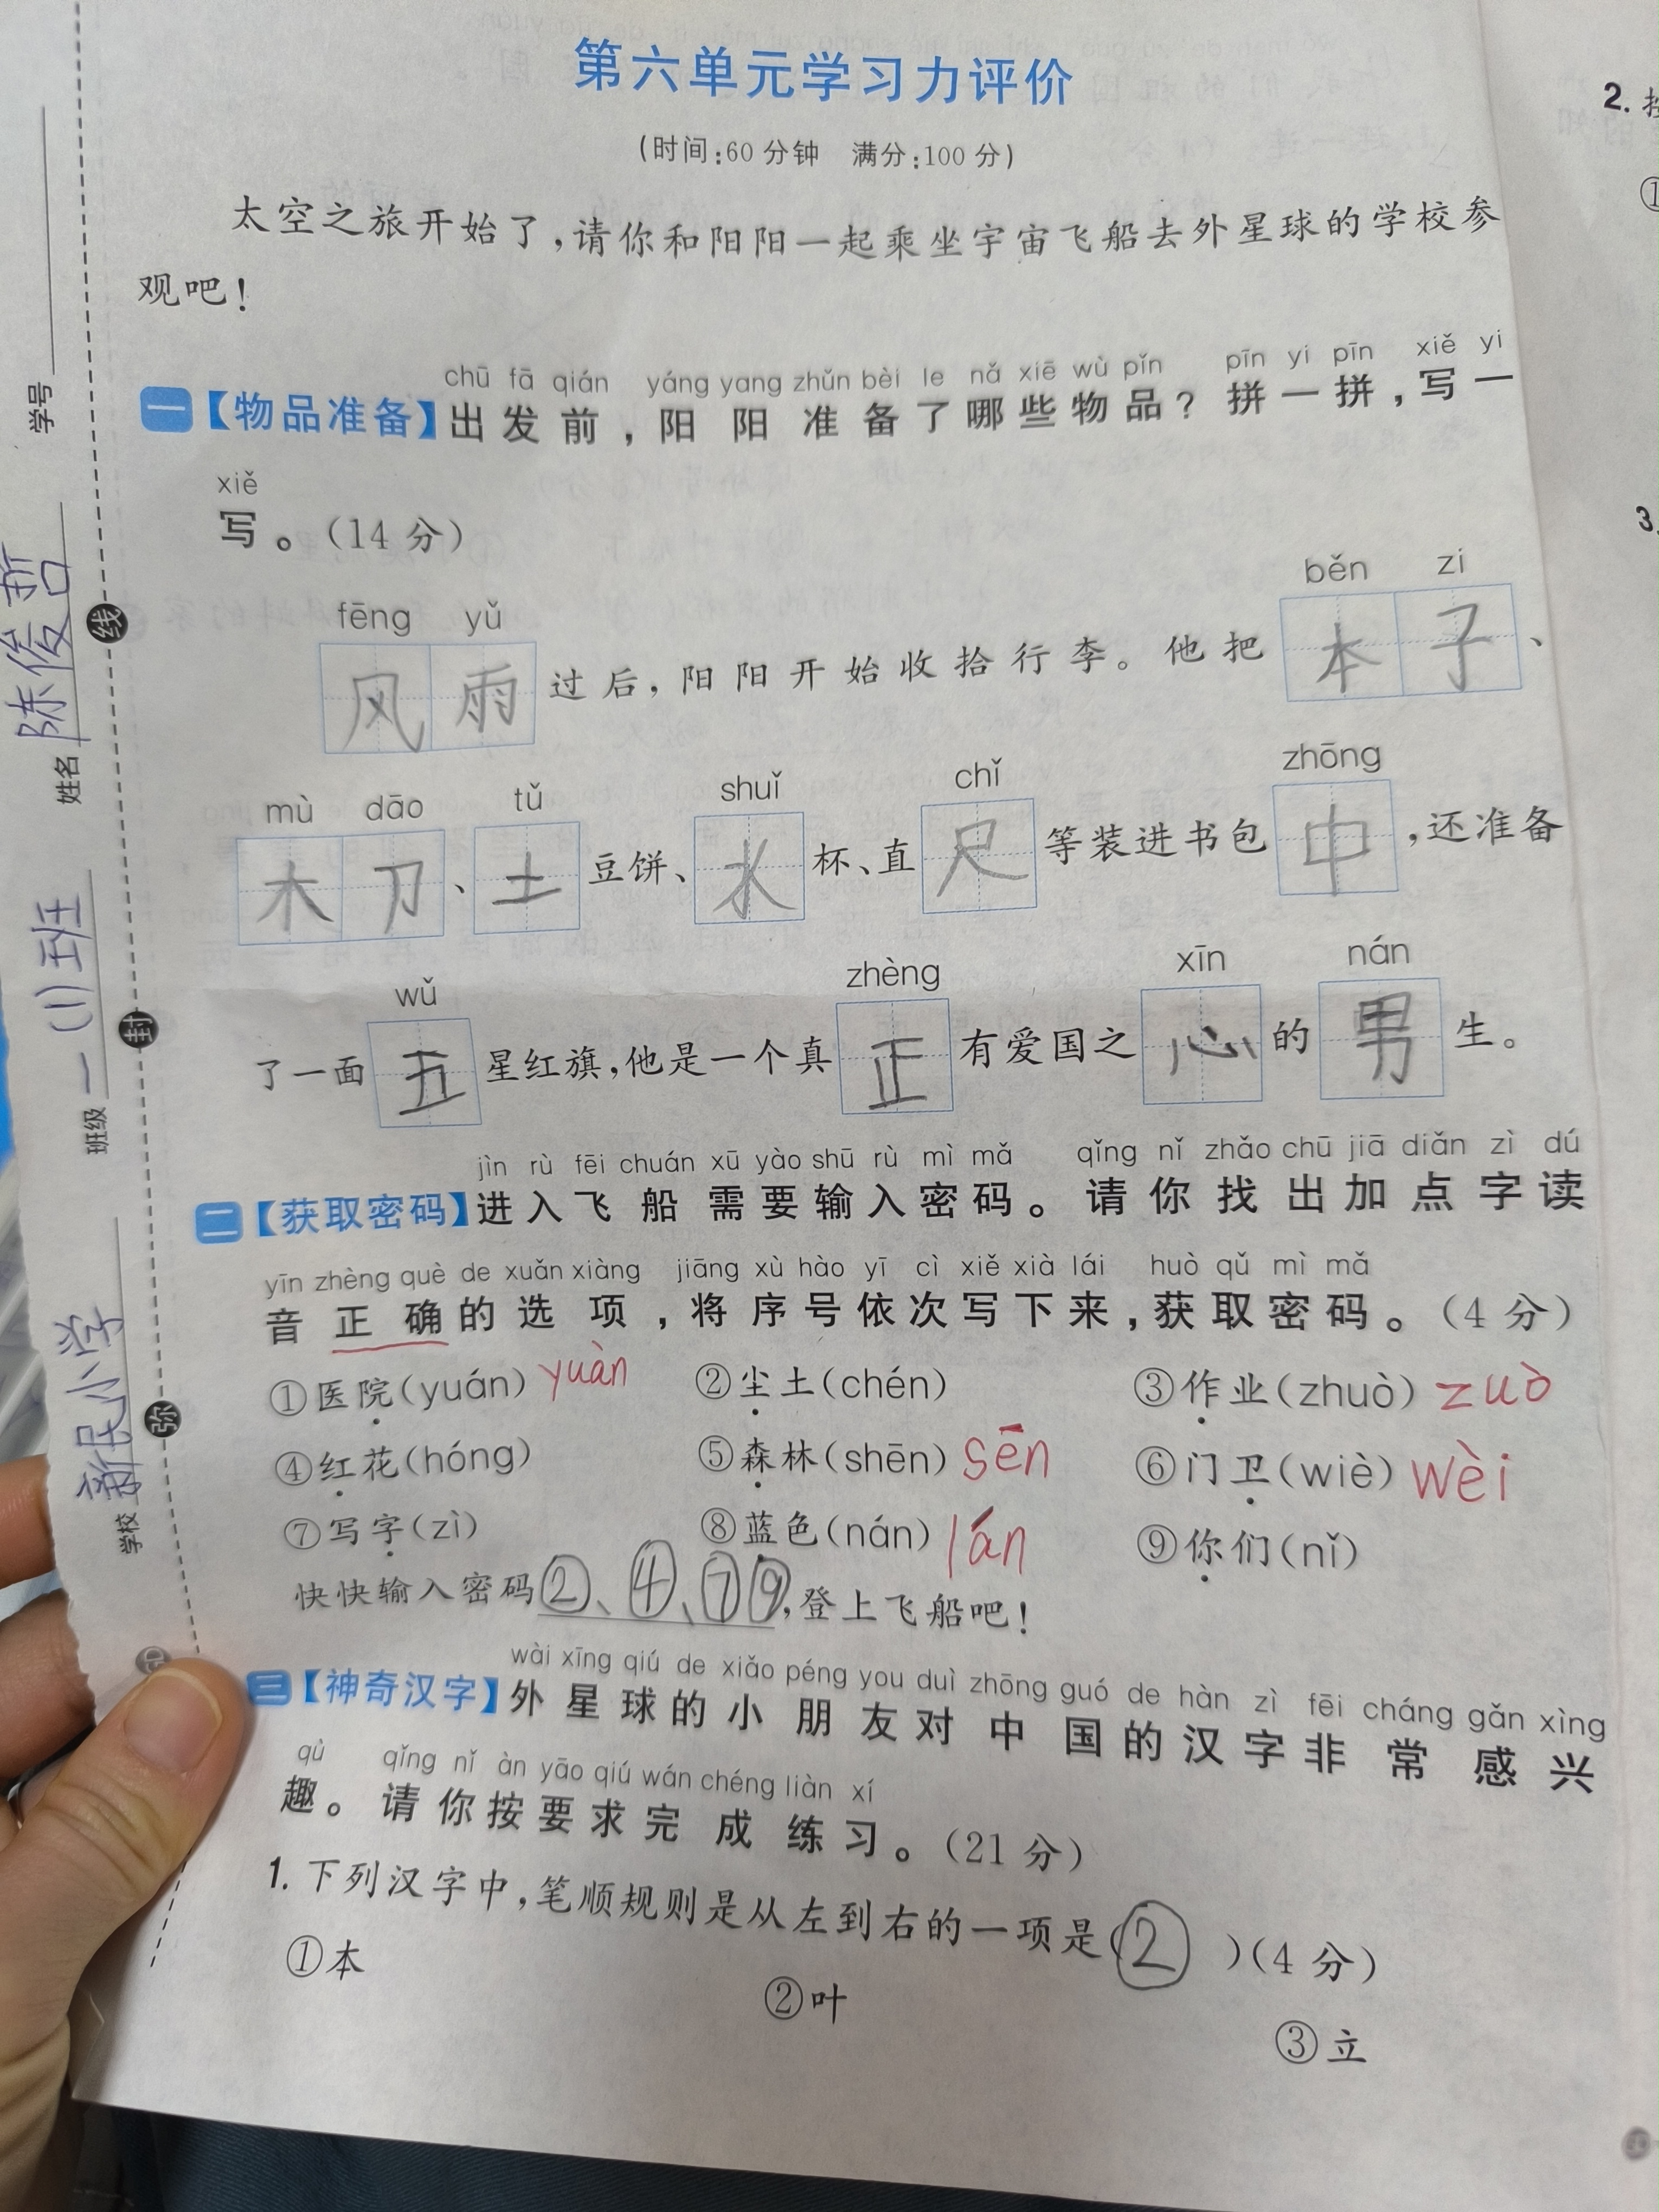 第六单元学习力评价
(时间:60 分钟 满分:100 分)
太空之旅开始了,请你和阳阳一起乘坐宇宙飞船去外星球的学校参
观吧!
chū fā qián yáng yang zhǔn bèi le nǎ xiē wù pǐn pīn yi pīn xiě yi
一【物品准备】出发前,阳阳准备了哪些物品?拼一拼,写一
xiě
写。(14 分)
fēng yǔ běn zi
风雨过后,阳阳开始收拾行李。他把本子、
mù dāo tǔ shuǐ chǐ zhōng
木刀、土豆饼、水杯、直尺等装进书包中,还准备
wǔ zhèng xīn nán
了一面五星红旗,他是一个真正有爱国之心的男生。
jìn rù fēi chuán xū yào shū rù mì mǎ qǐng nǐ zhǎo chū jiā diǎn zì dú
二【获取密码】进入飞船需要输入密码。请你找出加点字读
yīn zhèng què de xuǎn xiàng jiāng xù hào yī cì xiě xià lái huò qǔ mì mǎ
音正确的选项,将序号依次写下来,获取密码。(4 分)
①医院(yuán) yuàn ②尘土(chén) ③作业(zhuò) zuò
④红花(hóng) ⑤森林(shēn) sēn ⑥门卫(wiè) wèi
⑦写字(zì) ⑧蓝色(nán) lán ⑨你们(nǐ)
快快输入密码②、④、⑦⑨,登上飞船吧!
wài xīng qiú de xiǎo péng you duì zhōng guó de hàn zì fēi cháng gǎn xìng
三【神奇汉字】外星球的小朋友对中国的汉字非常感兴
qù qǐng nǐ àn yāo qiú wán chéng liàn xí
趣。请你按要求完成练习。(21 分)
1. 下列汉字中,笔顺规则是从左到右的一项是(② )(4 分)
①本 ②叶 ③立
学校 新民小学 班级 一(1)班 姓名 陈俊哲 学号
弥 封 线
2. 按
①
3.